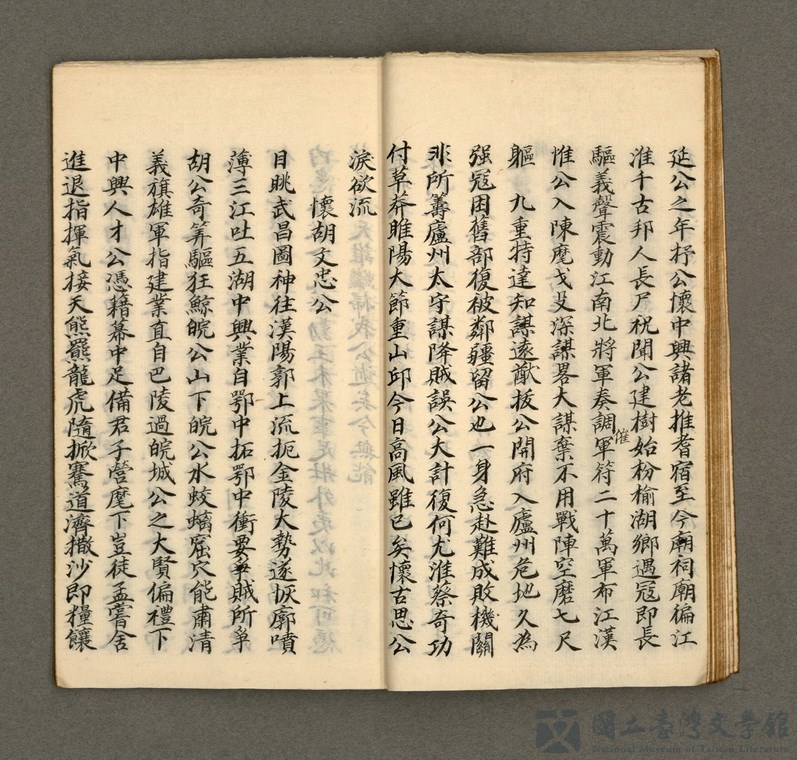 延公之年抒公懷中興諸老推耆宿至今廟祠廟徧江
淮千古邦人長尸祝聞公建樹始枌榆湖鄉遇寇即長
驅義聲震動江南北將軍奏調軍符二十萬軍布江漢
催
惟公入陳麾戈殳深謀畧大謀棄不用戰陣空磨七尺
軀 九重特達知謀遠猷拔公開府入廬州危地久為
强寇困舊部復被鄰疆留公也一身急赴難成敗機關
非所籌廬州太守謀降賊誤公大計復何尤淮蔡奇功
付草莽睢陽大節重山邱今日高風雖已矣懷古思公
淚欲流
懷胡文忠公
目眺武昌圖神往漢陽郭上流扼金陵大勢遂恢廓噴
薄三江吐五湖中興業自鄂中拓鄂中衝要爭賊所爭
胡公奇筭驅狂鯨皖公山下皖公水蛟螭窟穴能肅清
義旗雄軍指建業直自巴陵過皖城公之大賢偏禮下
中興人才公憑籍幕中足備君子營麾下豈徒孟嘗舍
進退指揮氣接天熊羆龍虎隨掀騫道濟撒沙即糧饟
國立臺灣文學館
National Museum of Taiwan Literature